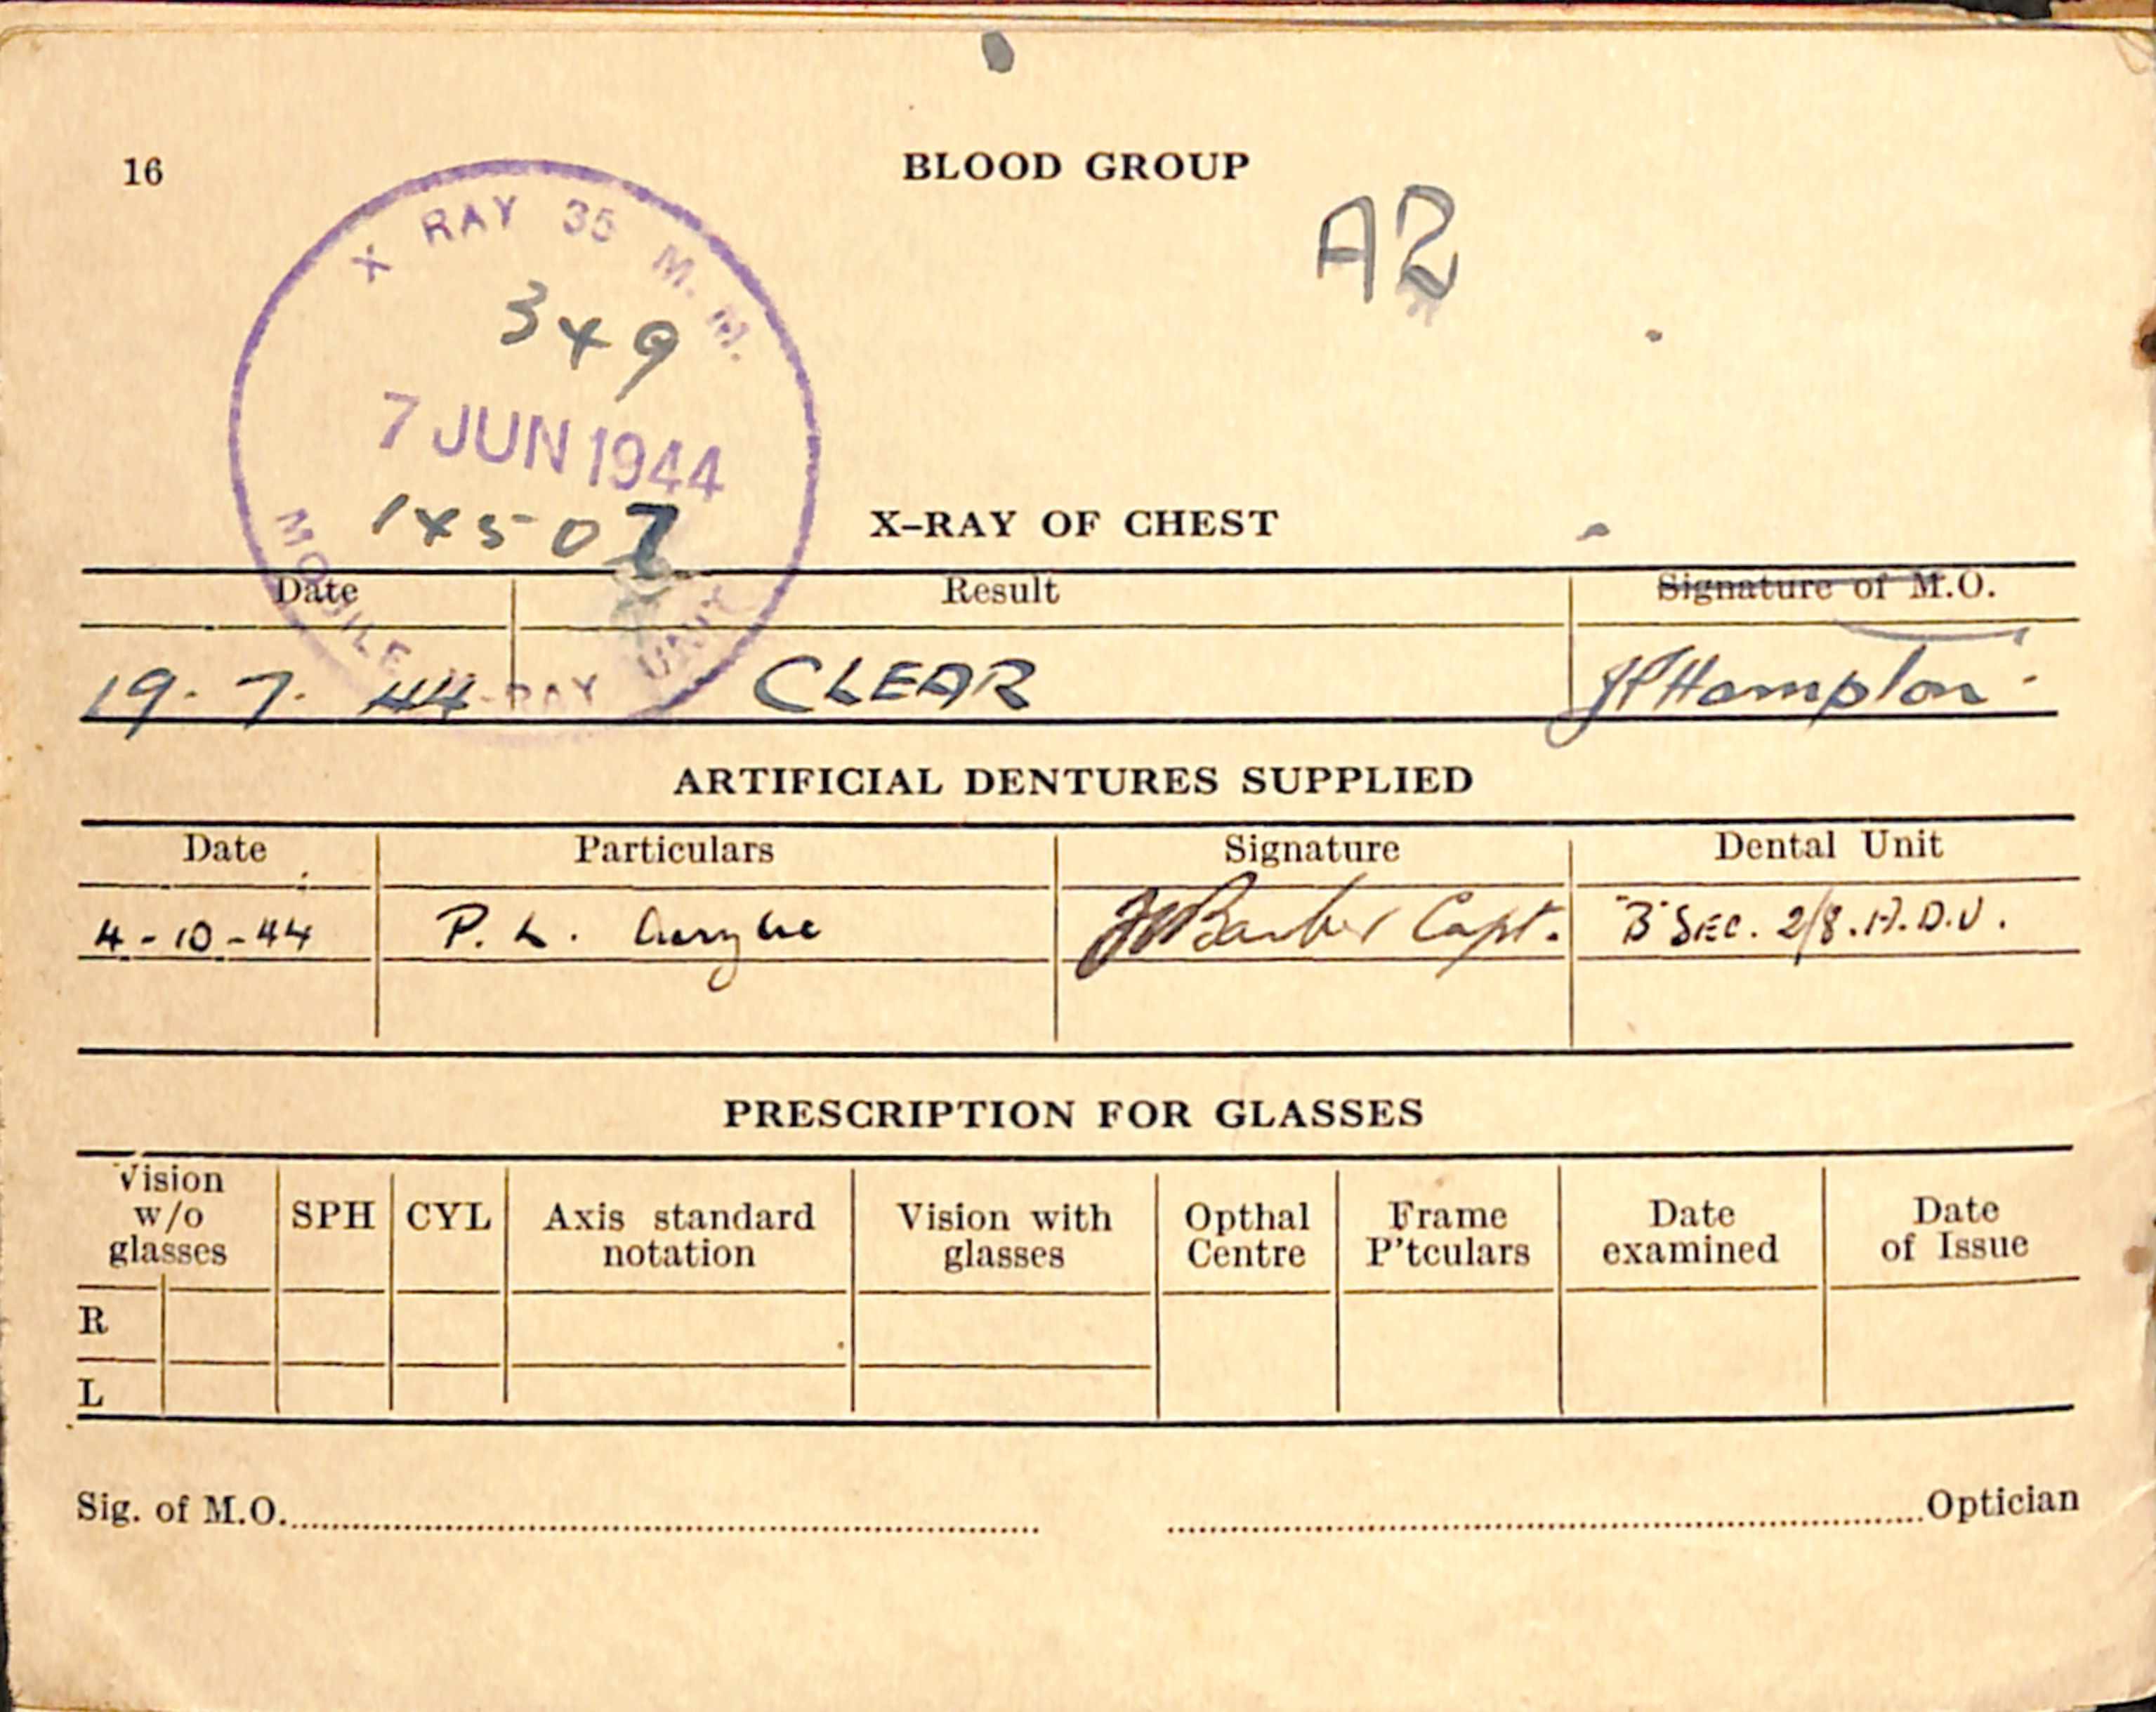 16
BLOOD GROUP
A2
X RAY 35 M. M.
349
7 JUN 1944
MOBILE X-RAY UNIT
X-RAY OF CHEST
Date Result Signature of M.O.
19. 7. 44 CLEAR Hampton
ARTIFICIAL DENTURES SUPPLIED
Date Particulars Signature Dental Unit
4-10-44 P. L. Barber Capt. "B" SEC. 2/8. A.D.U.
PRESCRIPTION FOR GLASSES
Vision w/o glasses SPH CYL Axis standard notation Vision with glasses Opthal Centre Frame P'tculars Date examined Date of Issue
R
L
Sig. of M.O. Optician